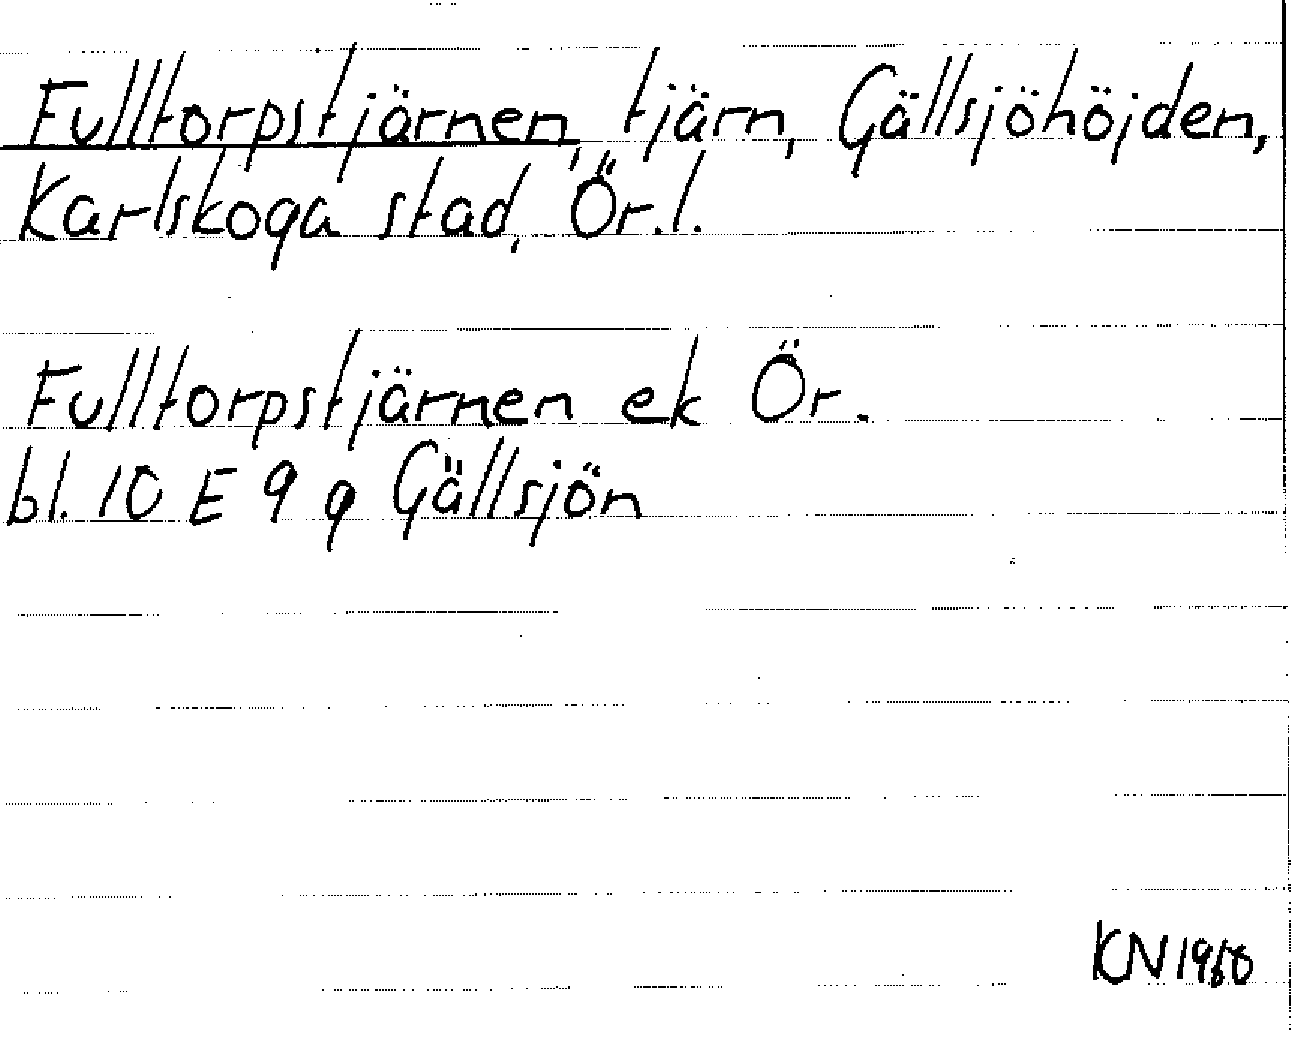 Fulltorpstjärnen, tjärn, Gällsjöhöjden,
Karlskoga stad, Ör.l.
Fulltorpstjärnen ek Ör.
bl. 10 E 9 g Gällsjön
KN 1968